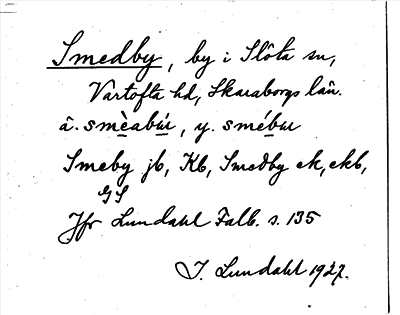 Smedby, by i Slöta sn,
Vartofta hd, Skaraborgs län.
ä. smèabu̇r, y. smébur
Smeby jb, Kb, Smedby ek, ekb,
GS
Jfr Lundahl Falb. s. 135
I. Lundahl 1927.